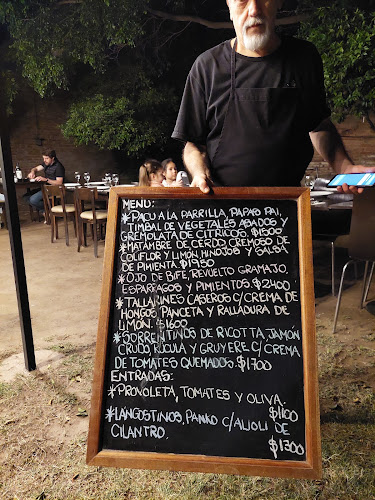 MENU:
*PACU A LA PARRILLA, PAPAS PAI,
TIMBAL DE VEGETALES ASADOS Y
GREMOLATA DE CITRICOS. $1500
*MATAMBRE DE CERDO, CREMOSO DE
COLIFLOR Y LIMÓN, HINOJOS Y SALSA
DE PIMIENTA. $1950
*OJO DE BIFE, REVUELTO GRAMAJO,
ESPÁRRAGOS Y PIMIENTOS $2400
*TALLARINES CASEROS C/CREMA DE
HONGOS, PANCETA Y RALLADURA DE
LIMÓN. $1600
*SORRENTINOS DE RICOTTA, JAMÓN
CRUDO, RÚCULA Y GRUYERE C/ CREMA
DE TOMATES QUEMADOS. $1700
ENTRADAS:
*PROVOLETA, TOMATES Y OLIVA.
$1100
*LANGOSTINOS, PANKO C/ALIOLI DE
CILANTRO. $1300